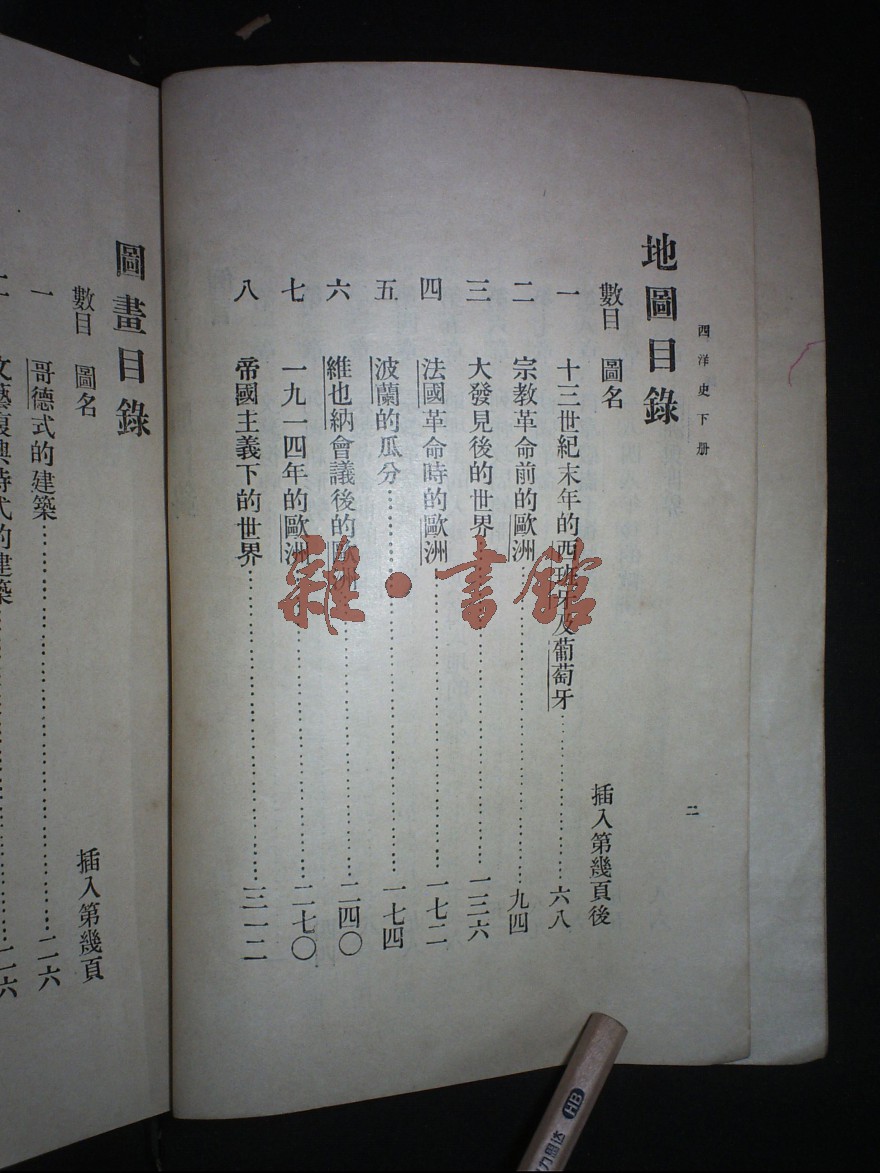 西洋史下册
二
地圖目錄
數目 圖名 插入第幾頁後
一 十三世紀末年的西班牙及葡萄牙……六八
二 宗教革命前的歐洲……九四
三 大發見後的世界……一三六
四 法國革命時的歐洲……一七二
五 波蘭的瓜分……一七四
六 維也納會議後的歐洲……二四〇
七 一九一四年的歐洲……二七〇
八 帝國主義下的世界……三一二
圖畫目錄
數目 圖名 插入第幾頁
一 哥德式的建築……二六
二 文藝復興時代的建築……二六
雜·書館
HB